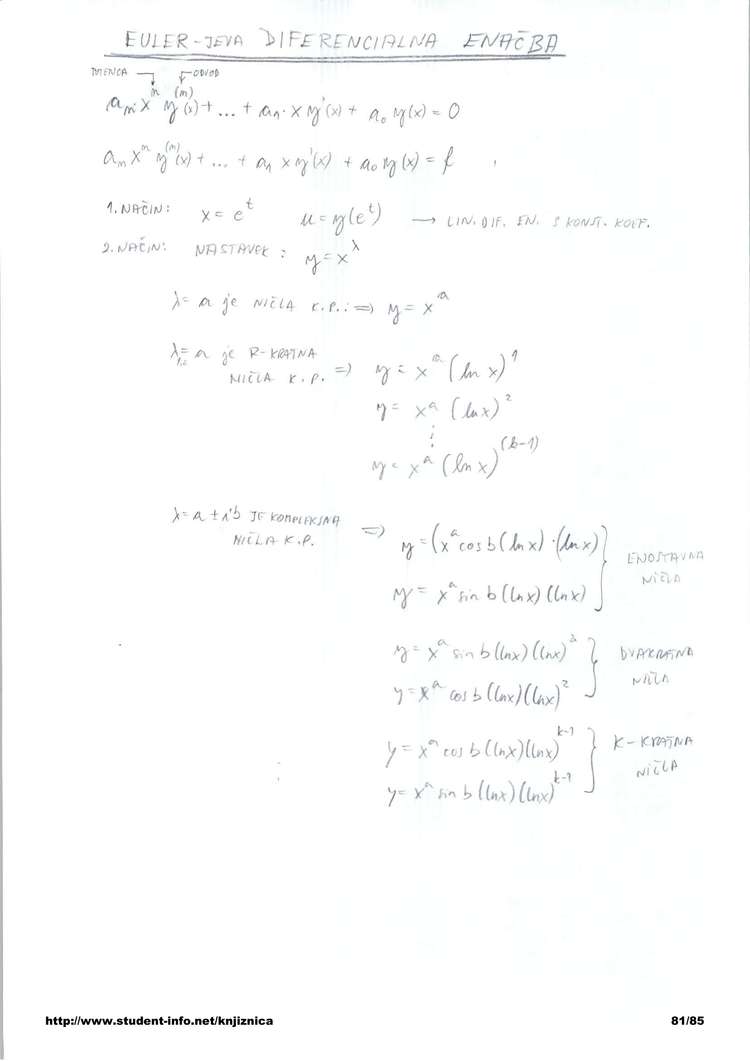 EULER-JEVA DIFERENCIALNA ENAČBA
POTENCA ODVOD
aₙ·xⁿ y⁽ⁿ⁾(x) + ... + a₁·x y'(x) + a₀ y(x) = 0
aₙ xⁿ y⁽ⁿ⁾(x) + ... + a₁ x y'(x) + a₀ y(x) = f
1. NAČIN: x = e^t u = y(e^t) → LIN. DIF. EN. S KONST. KOEF.
2. NAČIN: NASTAVEK : y = x^λ
λ = a je NIČLA K.P.: => y = x^a
λ₁,₂ = a je R-KRATNA
NIČLA K.P. => y = x^a (ln x)^1
y = x^a (ln x)^2
⋮
y = x^a (ln x)^(k-1)
λ = a + ib JE KOMPLEKSNA
NIČLA K.P. => y = (x^a cos b(ln x)·(ln x)
y = x^a sin b(ln x)(ln x)
ENOSTAVNA
NIČLA
y = x^a sin b(lnx)(lnx)^2
y = x^a cos b(lnx)(lnx)^2
DVAKRATNA
NIČLA
y = x^a cos b(lnx)(lnx)^k-1
y = x^a sin b(lnx)(lnx)^k-1
K-KRATNA
NIČLA
http://www.student-info.net/knjiznica 81/85